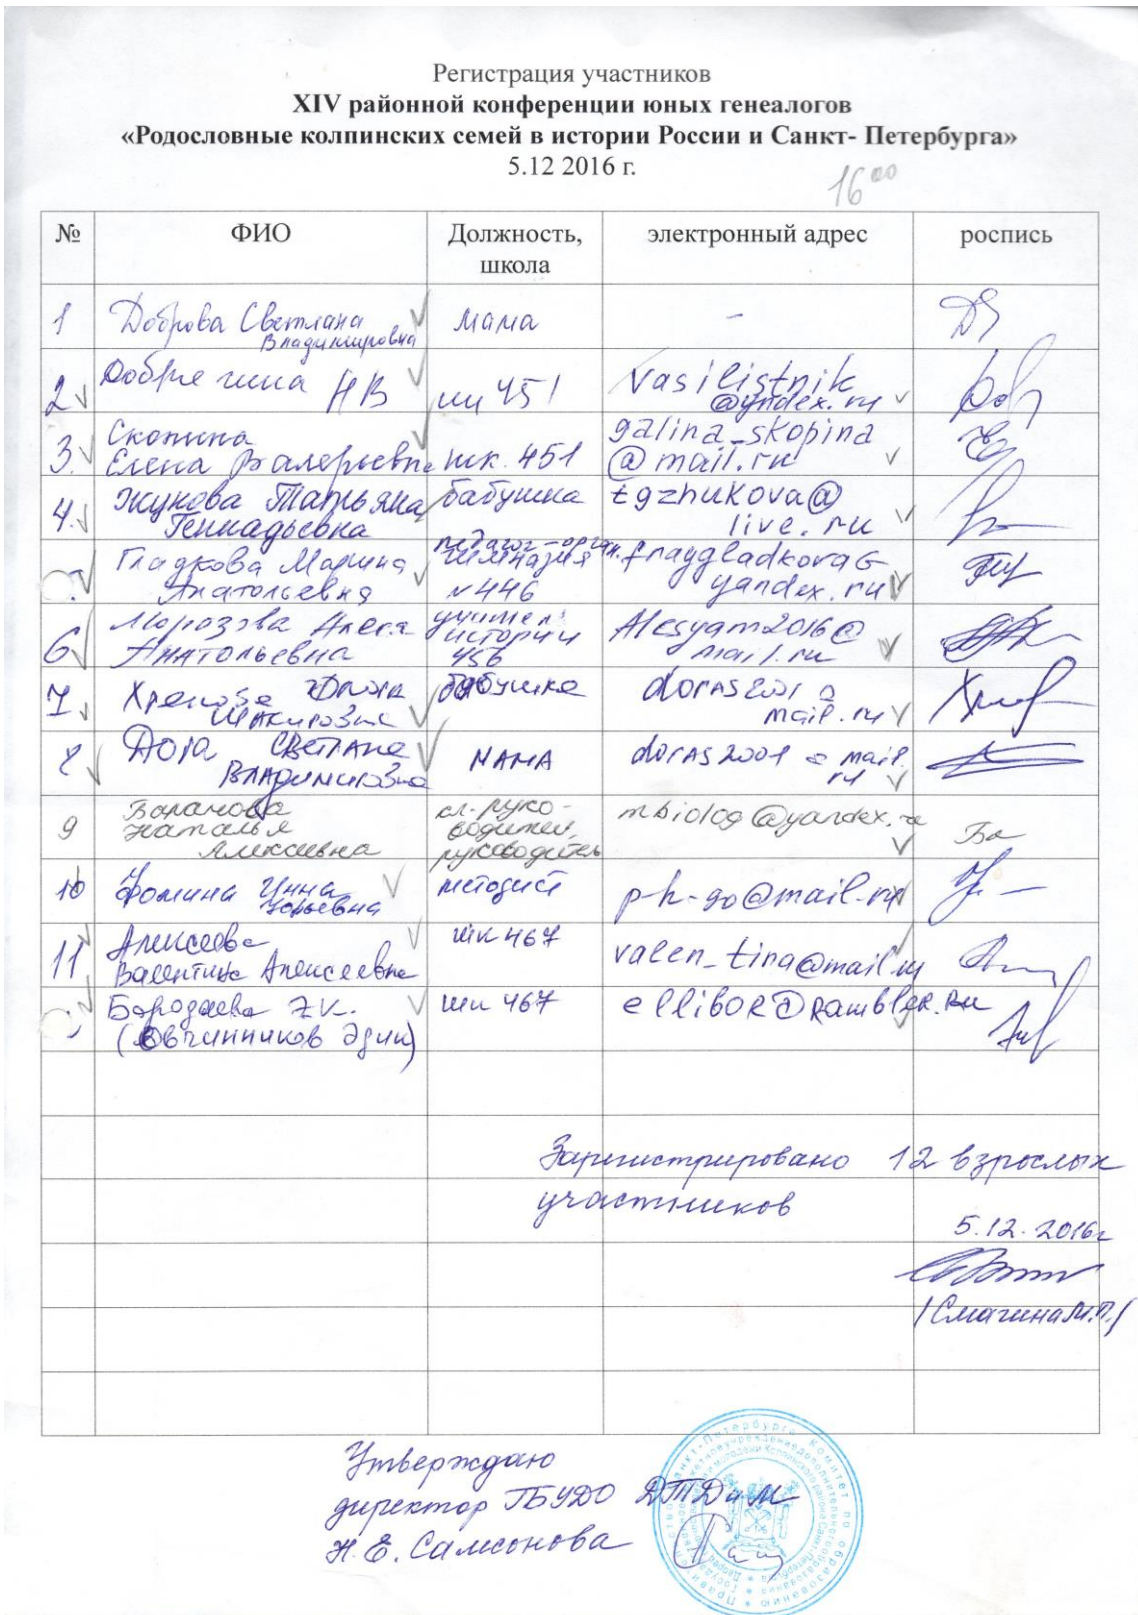 Регистрация участников
XIV районной конференции юных генеалогов
«Родословные колпинских семей в истории России и Санкт- Петербурга»
5.12 2016 г.
16 00
№ ФИО Должность, школа электронный адрес роспись
1 Доброва Светлана Владимировна мама -
2 НВ шк 451 vasilistnik@yndex.ru
3. Скопина Елена Валерьевна шк. 451 galina_skopina@mail.ru
4. Жукова Татьяна Геннадьевна бабушка tgzhukova@live.ru
Гладкова Марина Анатольевна педагог-орган. гимназия №446 yandex.ru
6 Морозова Алеся Анатольевна учитель истории 456 Alesyam2016@mail.ru
7 бабушка mail.ru
8 Светлана Владимировна МАМА doras2001 @ mail.ru
9 Баранова Наталья Алексеевна кл. руководитель, руководитель mbiolog@yandex.ru
10 Фомина Инна Юрьевна методист ph-go@mail.ru
11 Алексеева Валентина Алексеевна шк 467 valen_tina@mail.ru
(Овчинников Эдик) шк 467 ellibor@rambler.ru
Зарегистрировано 12 взрослых
участников
5.12.2016г
/Смагина М.П./
Утверждаю
директор ГБУДО ДТДиМ
Н.Е. Самсонова